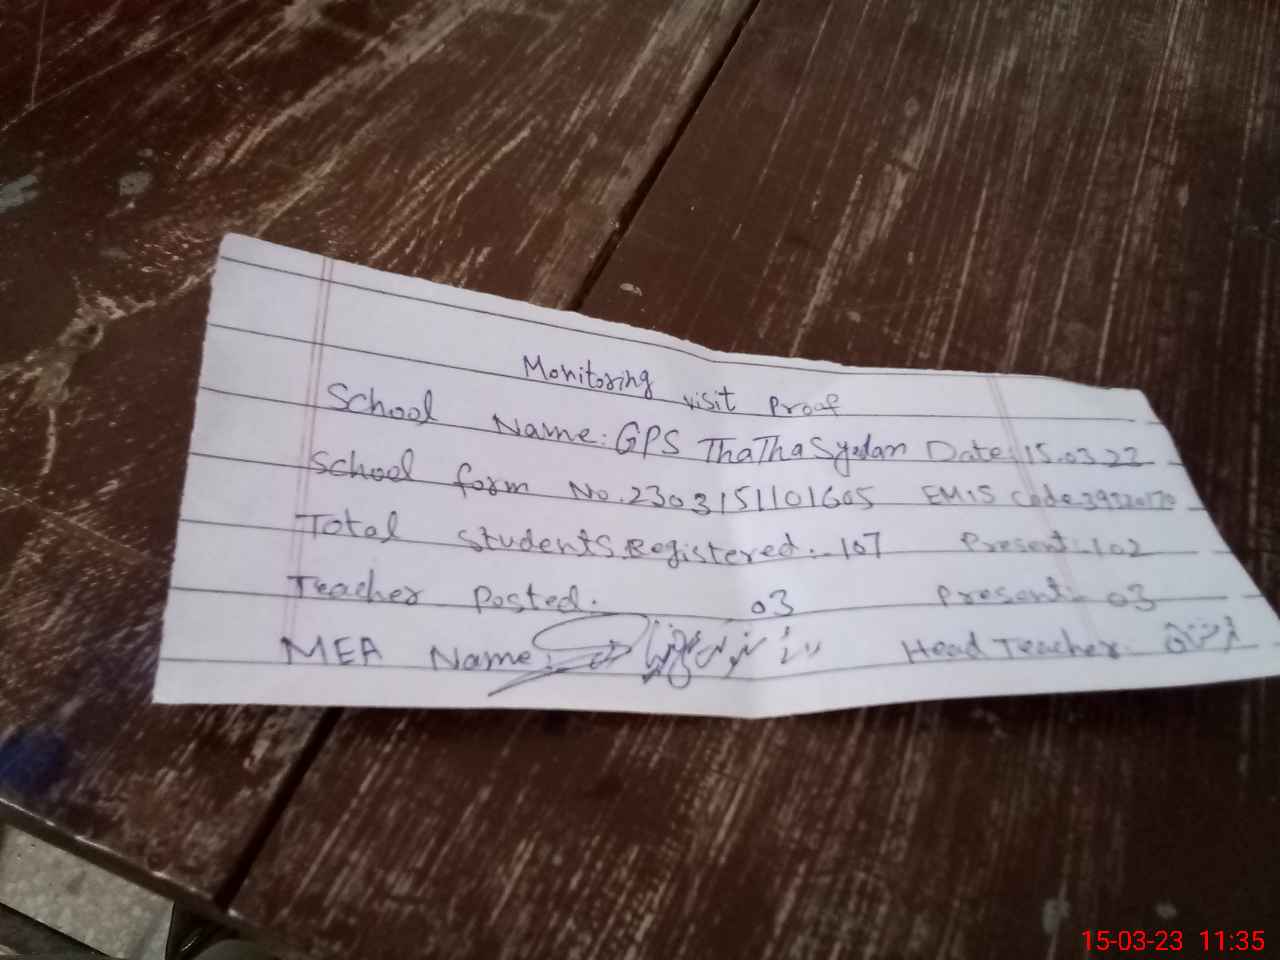 Monitoring visit Proof
School Name: GPS ThaTha Syedan Date: 15.03.22
School form No. 2303151101605 EMIS Code
Total students Registered:- 107 Present:- 102
Teacher Posted:- 03 Present:- 03
MEA Name: Head Teacher:
15-03-23 11:35